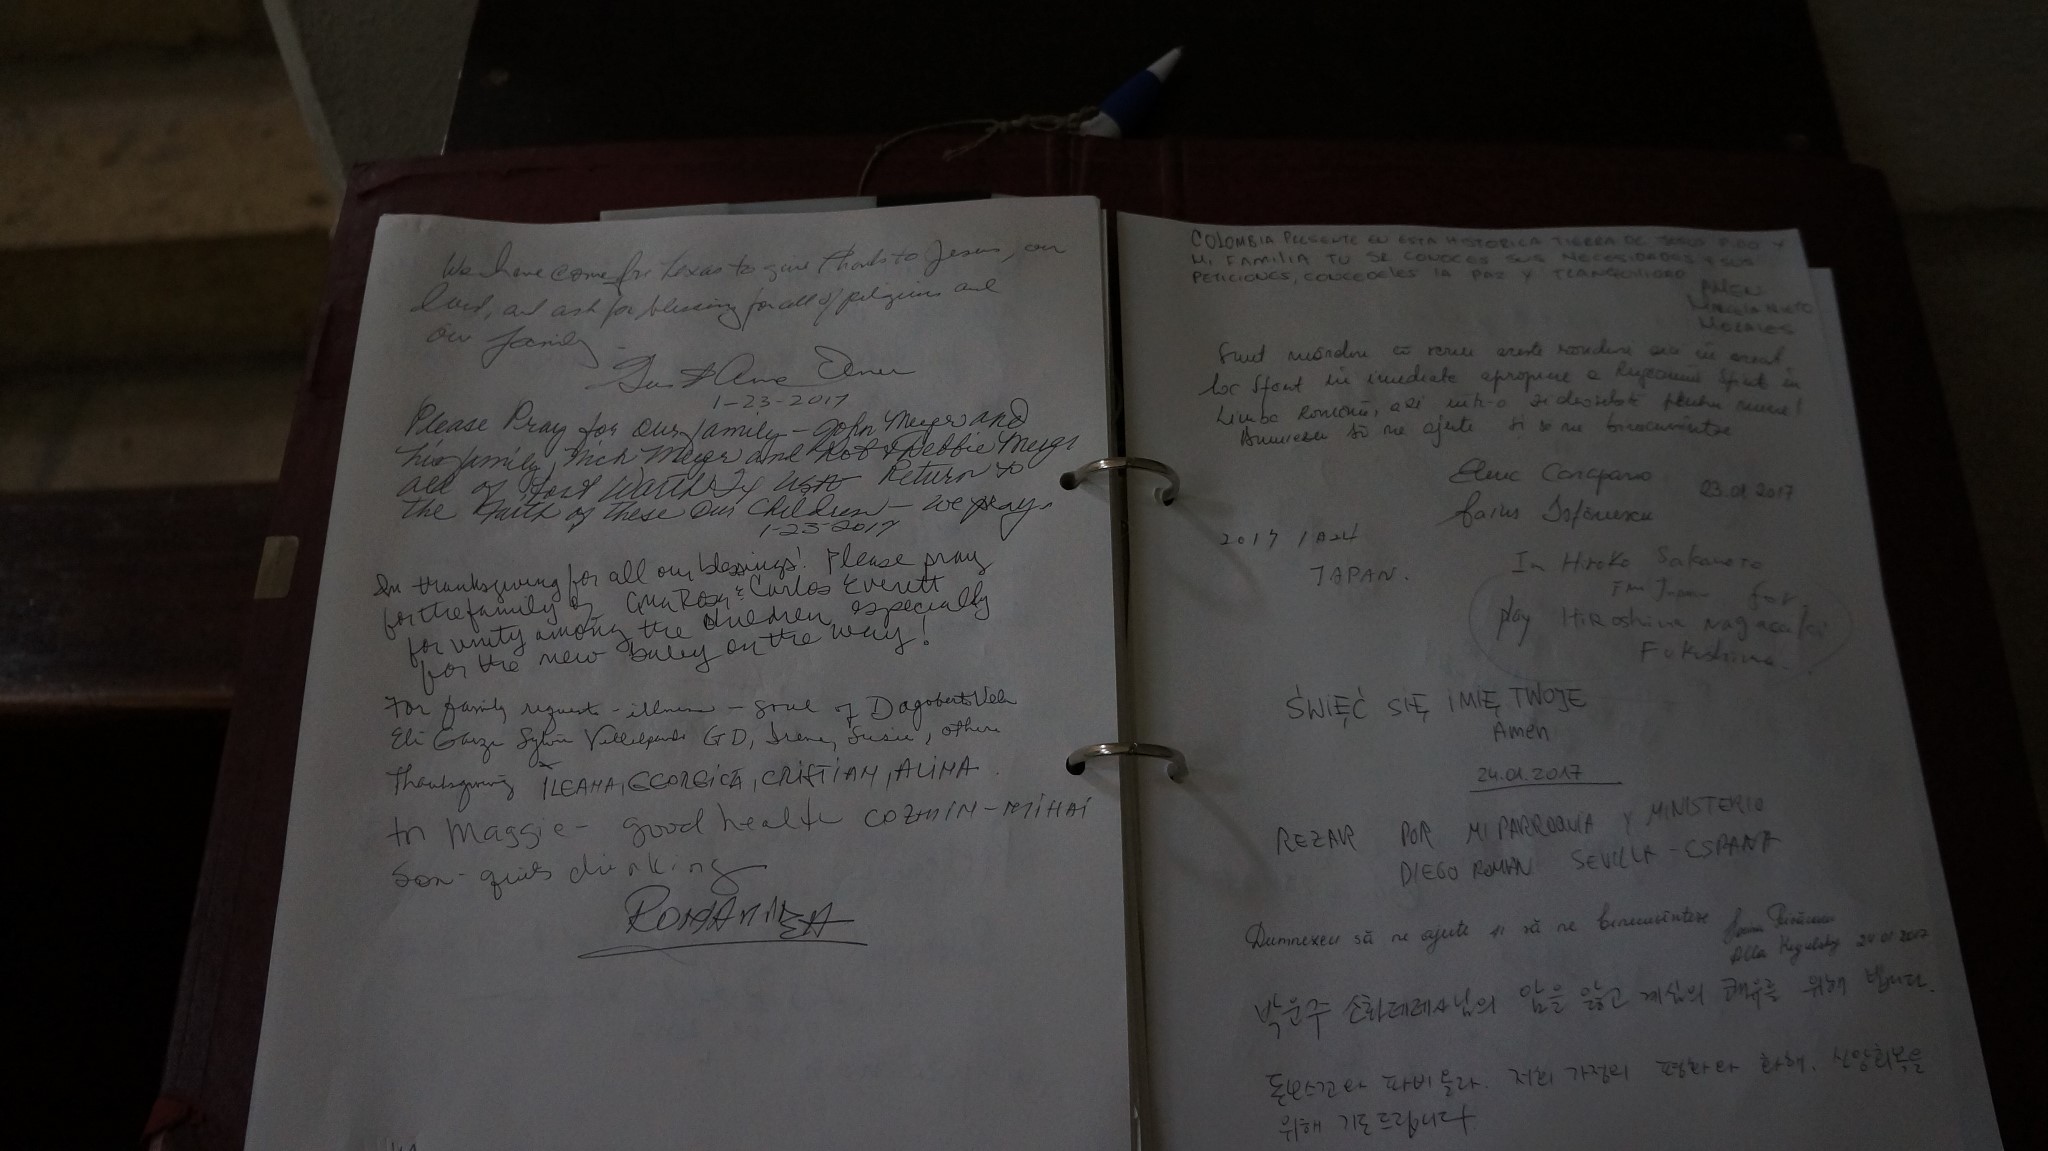 We have come fr Texas to give thanks to Jesus, our
Lord, and ask for blessing for all of pilgrims and
our family
1-23-2017
Please Pray for our family - John Meyer and
his family, Nick Meyer and Rob & Debbie Meyer
all of Fort Worth Tx USA Return to
the Faith of these our Children - we pray.
1-23-2017
In thanksgiving for all our blessings! Please pray
for the family of Rosy & Carlos Everett
for unity among the children, especially
for the new baby on the way!
For family requests - illness - soul of Dagoberto Vela
Eli Garza Sylvia GD, Irene, Susie, others
Thanksgiving ILEANA, GEORGICĂ, CRISTIAN, ALINA.
to Maggie - good health COZMIN-MIHAI
Son - quits drinking
ROMANIEA
COLOMBIA PRESENTE EN ESTA HISTORICA TIERRA DE PIDO Y
MI FAMILIA TU SE CONOCES SUS NECESIDADES Y SUS
PETICIONES, CONCEDELES LA PAZ Y TRANQUILIDAD
AMEN
MARCELA NIETO
MORALES
Sunt mândru că scriu aceste rânduri aici în acest
loc sfânt în imediata apropiere a Rugăciunii în
Limba Română, azi într-o zi deosebită pentru mine!
Dumnezeu să ne ajute și să ne binecuvânteze
23.01.2017
2017 1A24
JAPAN.
Im Hiroko Sakamoto
fm Japan for
play Hiroshima Nagasaki
Fukushima.
ŚWIĘĆ SIĘ IMIĘ TWOJE
Amen
24.01.2017
REZAR POR MI PARROQUIA Y MINISTERIO
DIEGO ROMAN SEVILLA - ESPAÑA
Dumnezeu să ne ajute și să ne binecuvinteze
24 01 2017
박운주 소화데레사님의 암을 앓고 계심의 쾌유를 위해 빕니다.
돈보스코와 파비올라. 저희 가정의 평화와 화해. 신앙회복을
위해 기도드립니다